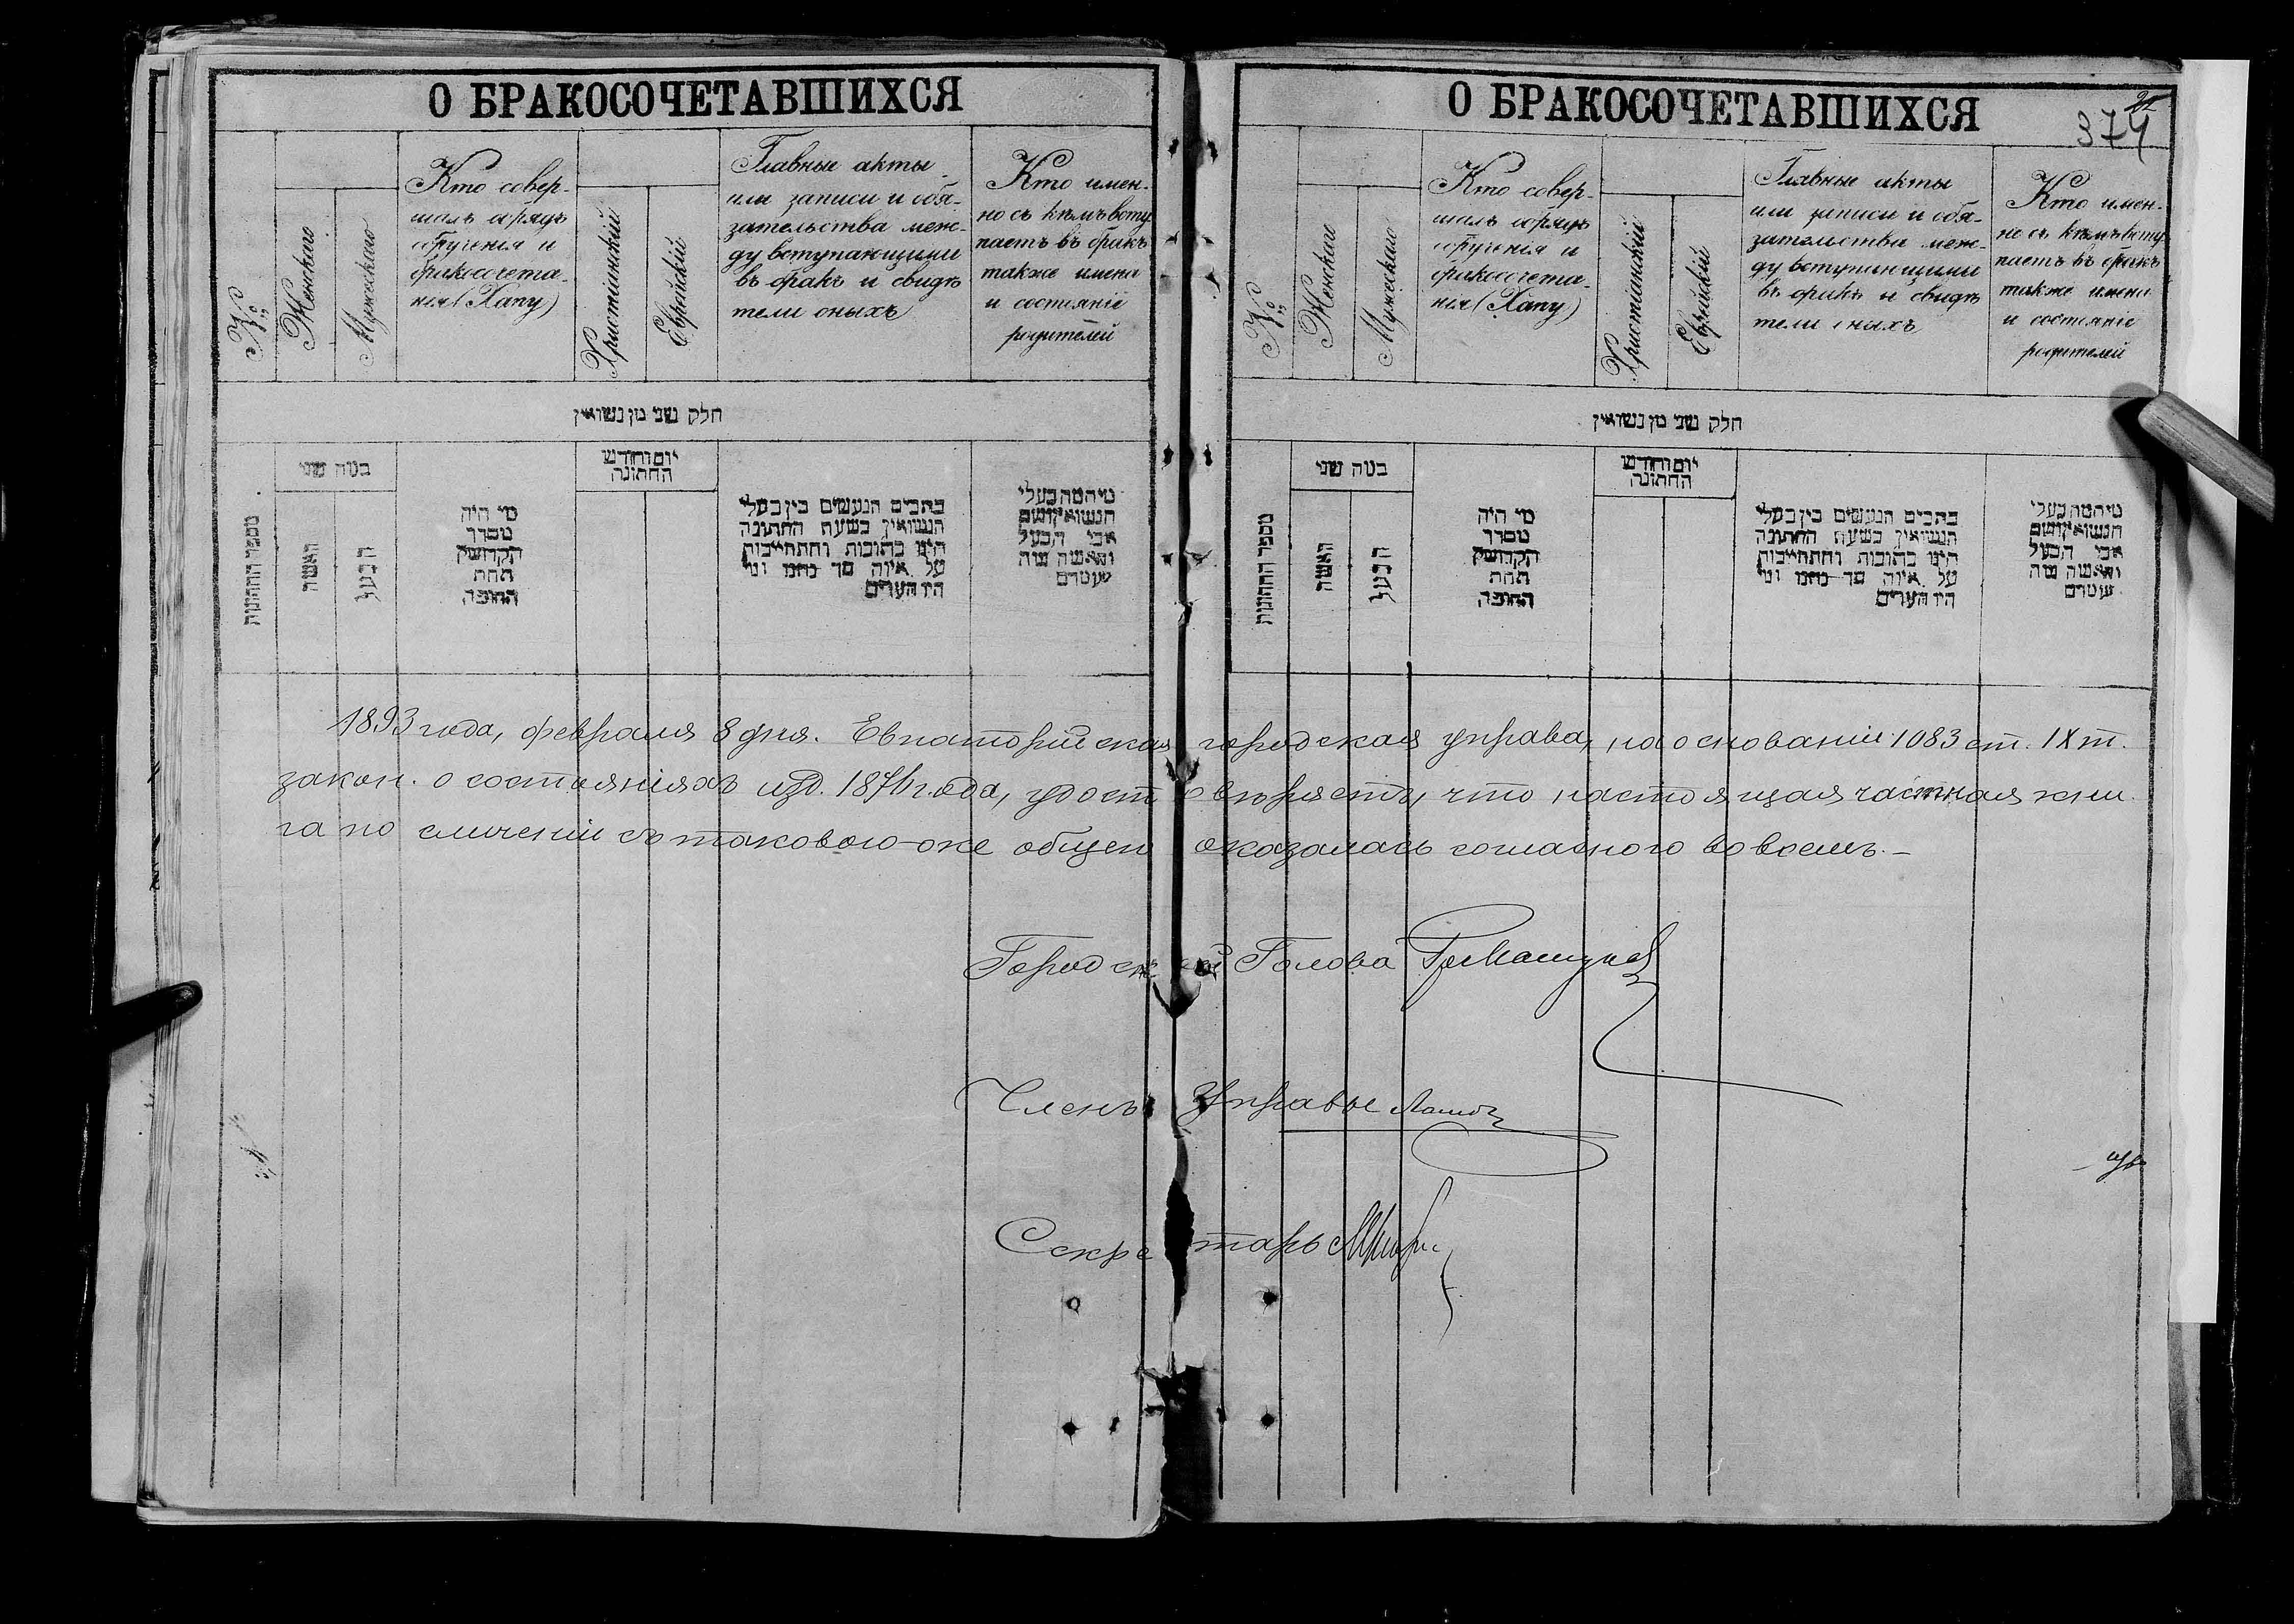 О БРАКОСОЧЕТАВШИХСЯ
№
Женского
Мужескаго
Кто совер-
шалъ обрядъ
обрученія и
бракосочета-
нія (Хапу)
Христіанскій
Еврейскій
Главные акты
или записи и обя-
зательства меж-
ду вступающими
въ бракъ и свидѣ
тели оныхъ
Кто имен-
но съ кѣмъ всту
паетъ въ бракъ
также имена
и состояніе
родителей
חלק שני מן נשואין
מספר החתונות
כמה שני
האשה
הבעל
מי היה
מסדר
הקדושין
תחת
החופה
יום וחודש
החתונה
כתבים הנעשים בין בעלי
הנשואין בשעת החתונה
היינו כתובות והתחייבות
על איזה סך
היו העדים
הנשואין ושם
אבי הבעל
והאשה
О БРАКОСОЧЕТАВШИХСЯ
374
№
Женскаго
Мужескаго
Кто совер-
шалъ обрядъ
обрученія и
бракосочета-
нія (Хапу)
Христіанскій
Еврейскій
Главные акты
или записи и обя-
зательства меж-
ду вступающими
въ бракъ и свидѣ
тели оныхъ
Кто имен-
но съ кѣмъ всту
паетъ въ бракъ
также имена
и состояніе
родителей
חלק שני מן נשואין
מספר החתונות
כמה שני
האשה
הבעל
מי היה
מסדר
הקדושין
תחת
החופה
יום וחודש
החתונה
כתבים הנעשים בין בעלי
הנשואין בשעת החתונה
היינו כתובות והתחייבות
על איזה סך
היו העדים
הנשואין ושם
אבי הבעל
והאשה
1893 года, февраля 8 дня. Евпаторійская городская управа, на основаніи 1083 ст. IX т.
закон. о состояніяхъ изд. 1876 года, удостовѣряетъ, что настоящая частная кни
га по сличеніи съ таковою-же общею оказалась согласною во всемъ.—
Городской Голова
Членъ Управы
Секретарь